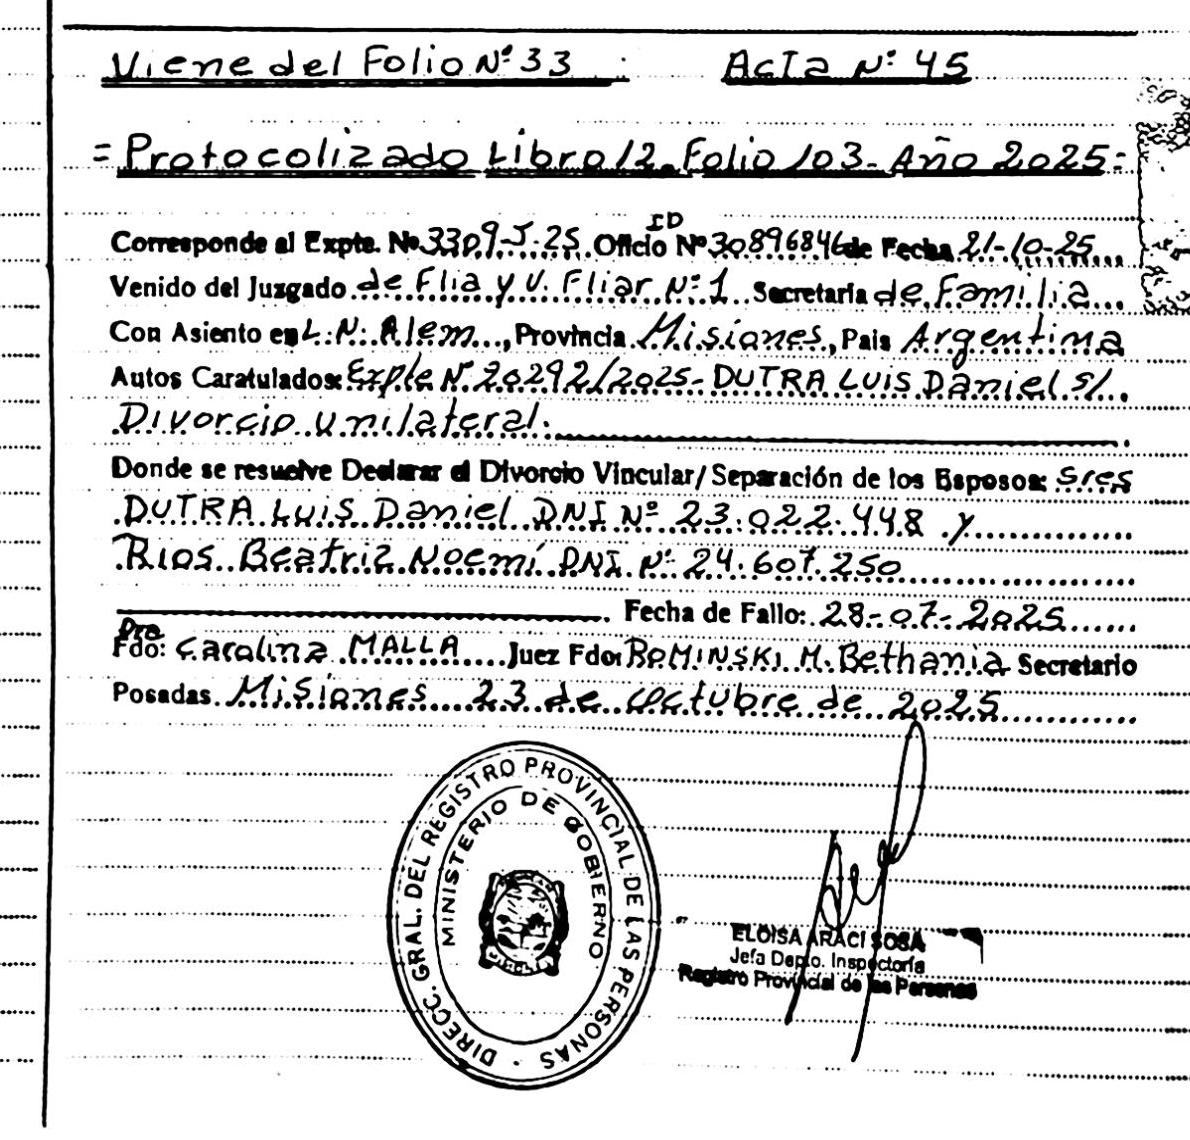 Viene del Folio Nº 33 Acta Nº 45
= Protocolizado Libro 12. Folio 103 - Año 2025 =
ID
Corresponde al Expte. Nº 3309-J-25 Oficio Nº 30896846 de Fecha 21-10-25
Venido del Juzgado de Flia y V. Fliar Nº 1 Secretaria de Familia
Con Asiento en L. N. Alem, Provincia Misiones, Pais Argentina
Autos Caratulados: Expte Nº 20292/2025 - DUTRA LUIS Daniel s/.
Divorcio unilateral.
Donde se resuelve Declarar el Divorcio Vincular/ Separación de los Esposos: Sres
DUTRA LUIS Daniel DNI Nº 23.022.448 y
Rios Beatriz Noemí DNI Nº 24.607.250
Fecha de Fallo: 28-07-2025
Dra
Fdo: Carolina MALLA Juez Fdo: ROMINSKI M. Bethania Secretario
Posadas Misiones 23 de Octubre de 2025
DIRECC. GRAL. DEL REGISTRO PROVINCIAL DE LAS PERSONAS
MINISTERIO DE GOBIERNO
ELOISA ARACI SOSA
Jefa Depto. Inspectoría
Registro Provincial de las Personas